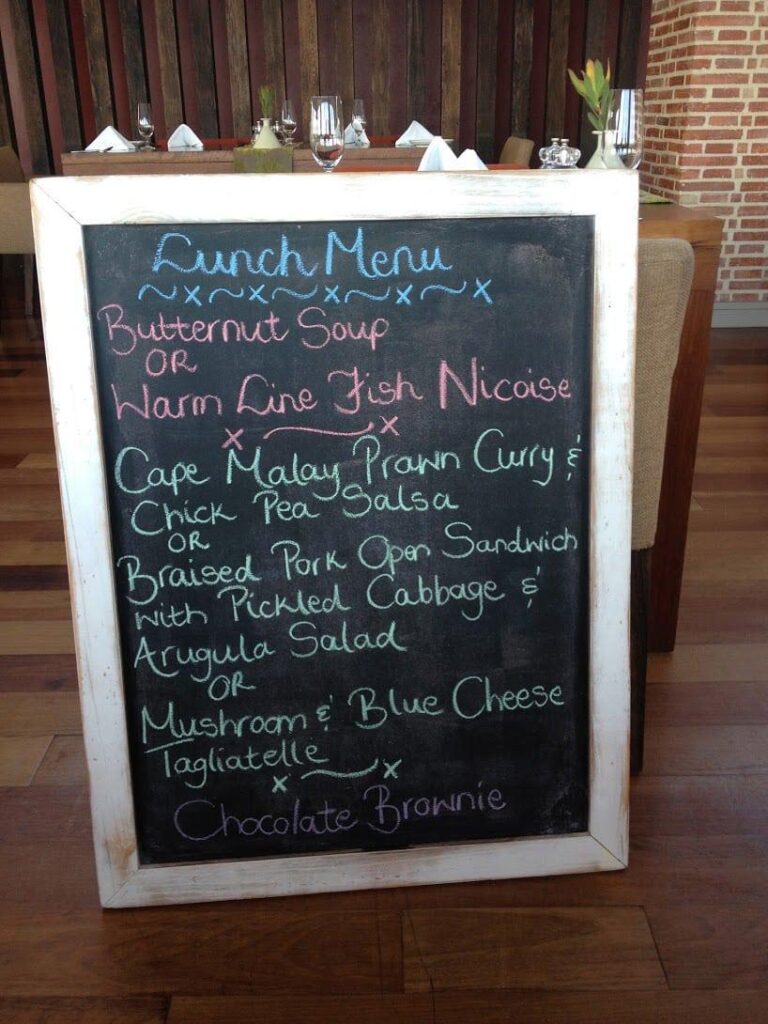 Lunch Menu
Butternut Soup
OR
Warm Line Fish Nicoise
Cape Malay Prawn Curry &
Chick Pea Salsa
OR
Braised Pork Open Sandwich
with Pickled Cabbage &
Arugula Salad
OR
Mushroom & Blue Cheese
Tagliatelle
Chocolate Brownie